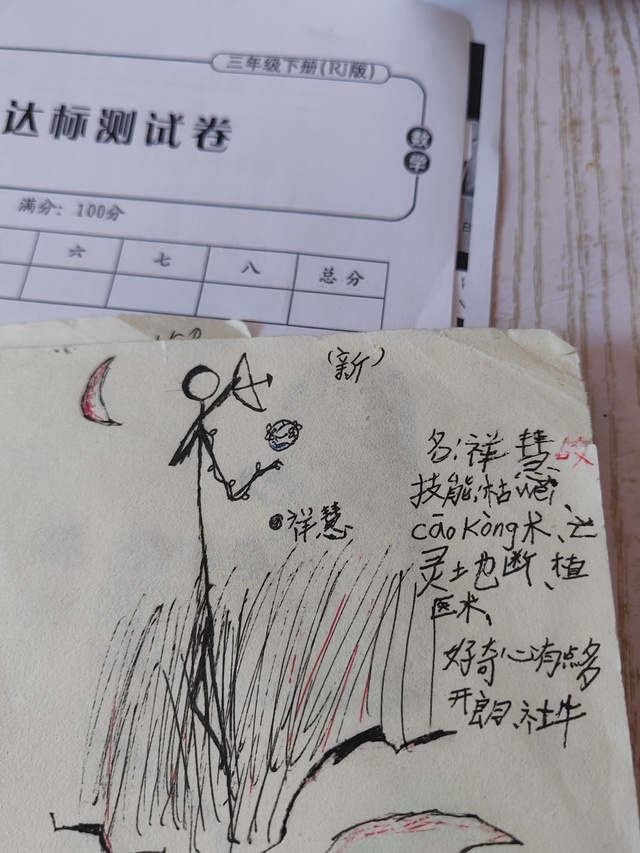 三年级下册(RJ版)
达标测试卷
数学
满分：100分
六 七 八 总分
(新)
名:祥慧
技能:枯wěi、
cāo Kòng术、
灵土也断、植
医术、
好奇心有点多
开朗、社牛
祥慧